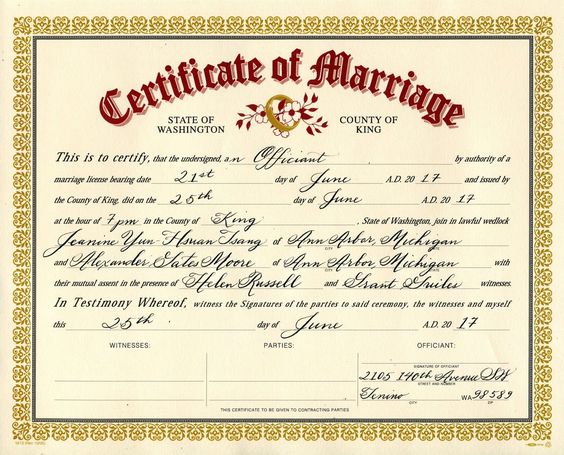 Certificate of Marriage
STATE OF WASHINGTON COUNTY OF KING
This is to certify, that the undersigned, an Officiant by authority of a
marriage license bearing date 21st day of June A.D. 2017 and issued by
the County of King, did on the 25th day of June A.D. 2017
at the hour of 7pm in the County of King, State of Washington, join in lawful wedlock
Jeanine Yun Hsuan Tsang of Ann Arbor, Michigan
CITY STATE
and Alexander States Moore of Ann Arbor, Michigan with
CITY STATE
their mutual assent in the presence of Helen Russell and Grant witnesses.
In Testimony Whereof, witness the Signatures of the parties to said ceremony, the witnesses and myself
this 25th day of June A.D. 2017
WITNESSES: PARTIES: OFFICIANT:
SIGNATURE OF OFFICIANT
2105 140th Avenue SW
STREET AND NUMBER
Tenino WA 98589
CITY ZIP
THIS CERTIFICATE TO BE GIVEN TO CONTRACTING PARTIES